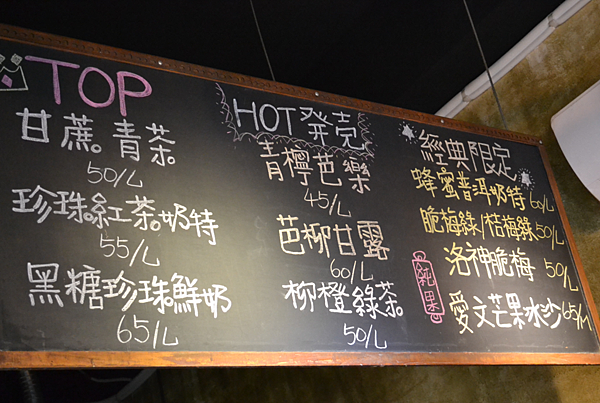 TOP
甘蔗青茶
50/L
珍珠紅茶奶特
55/L
黑糖珍珠鮮奶
65/L
HOT発売
青檸芭樂
45/L
芭柳甘露
60/L
柳橙綠茶
50/L
經典限定
蜂蜜普洱奶特 60/L
脆梅綠/桔梅綠 50/L
洛神脆梅 50/L
純果
愛文芒果冰沙 65/M